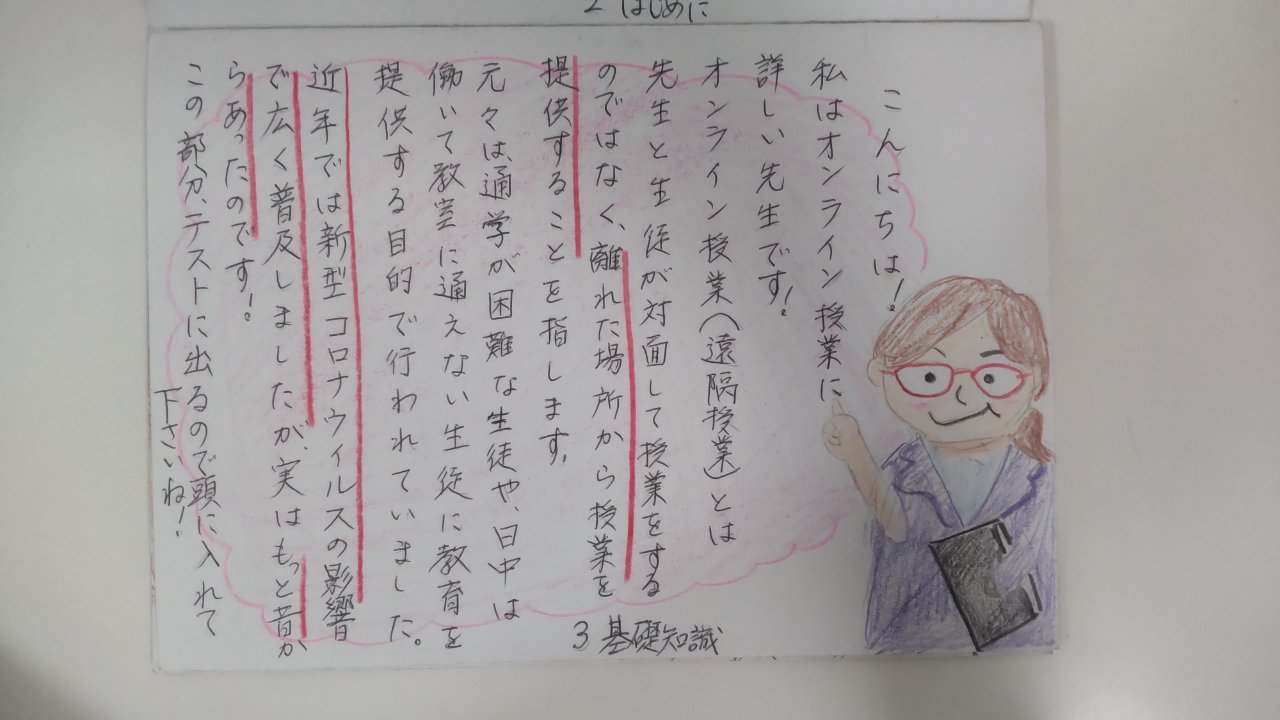 2 はじめに
こんにちは!
私はオンライン授業に
詳しい先生です!
オンライン授業(遠隔授業)とは
先生と生徒が対面して授業をする
のではなく、離れた場所から授業を
提供することを指します。
元々は、通学が困難な生徒や、日中は
働いて教室に通えない生徒に教育を
提供する目的で行われていました。
近年では新型コロナウィルスの影響
で広く普及しましたが、実はもっと昔か
らあったのです!
この部分、テストに出るので頭に入れて
下さいね!
3 基礎知識